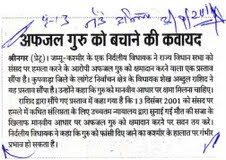 अफजल गुरु को बचाने की कवायद
श्रीनगर (प्रेट्र)। जम्मू-कश्मीर के एक निर्दलीय विधायक ने राज्य विधान सभा को
संसद पर हमला करने के आरोपी अफजल गुरु को क्षमादान करने वाला एक प्रस्ताव सौंपा है।
कुपवाड़ा जिले के लांगेट निर्वाचन क्षेत्र के विधायक शेख अब्दुल राशिद ने
यह प्रस्ताव सौंपा है। उन्होंने कहा कि गुरु को मानवीय आधार पर क्षमा मिलना चाहिए।
राशिद द्वारा सौंपे गए प्रस्ताव में कहा गया है कि 13 दिसंबर 2001 को संसद पर
हमले में कथित संलिप्तता के लिए उच्चतम न्यायालय द्वारा सुनाई गई मौत की सजा के
खिलाफ मानवीय आधार पर अफजल गुरु को क्षमादान करने पर सदन
निर्दलीय विधायक ने कहा कि गुरु को फांसी दिए जाने का कश्मीर के हालात पर गंभीर
प्रभाव हो सकता है।